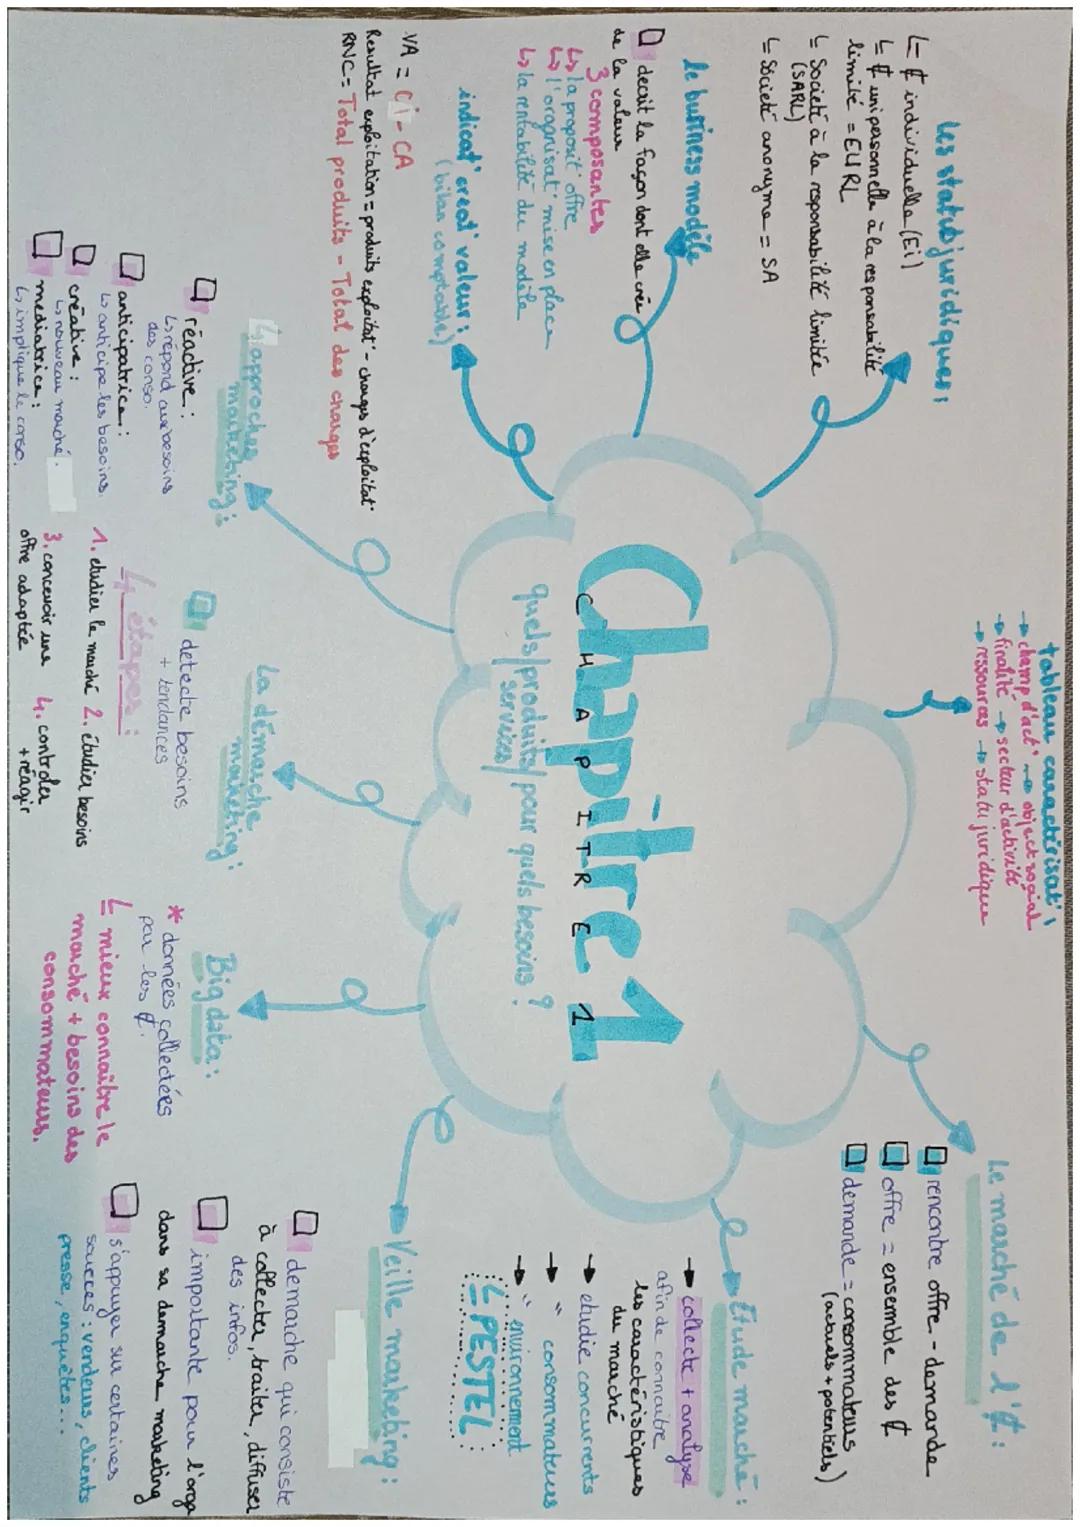 Chapitre 1
CHAPITRE 1
quels/produits/pour quels besoins ?
services/
Les statuts juridiques :
↳ ₡ individuelle (Ei)
↳ ₡ unipersonnelle à la responsabilité
limité = EURL
↳ Societé à la responsabilité limitée
(SARL)
↳ Société anonyme = SA
tableau caractérisat° :
→ champ d'act° → object social
→ finalité → secteur d'activité
→ ressources → statu juridique
Le marché de l'₡ :
rencontre offre - demande
offre = ensemble des ₡
demande = consommateurs
(actuels + potentiels)
le business modèle
decrit la façon dont elle crée
de la valeur
3 composantes
↳ la proposit° offre
↳ l'organisat° mise en place
↳ la rentabilité du modèle
Etude marché :
→ collecte + analyse
afin de connaitre
les caractéristiques
du marché
→ etudie concurrents
→ " consommateurs
→ " environnement
↳ PESTEL
indicat° creat° valeur :
(bilan comptable)
VA = Ci - CA
Resultat exploitation = produits exploitat° - charges d'exploitat°
RNC = Total produits - Total des charges
4 approches
marketing :
réactive :
↳ répond aux besoins
des conso.
anticipatrice :
↳ anticipe les besoins.
créative :
↳ nouveau marché.
mediatrice :
↳ implique le conso.
La démarche
marketing :
detecte besoins
+ tendances
4 étapes :
1. etudier le marché 2. étudier besoins
3. concevoir une 4. controler
offre adaptée + réagir
Big data :
* données collectées
par les ₡.
↳ mieux connaitre le
marché + besoins des
consommateurs.
Veille marketing :
demarche qui consiste
à collecter, traiter, diffuser
des infos.
importante pour l'orga
dans sa demarche marketing
s'appuyer sur certaines
sources : vendeurs, clients
presse, enquêtes...